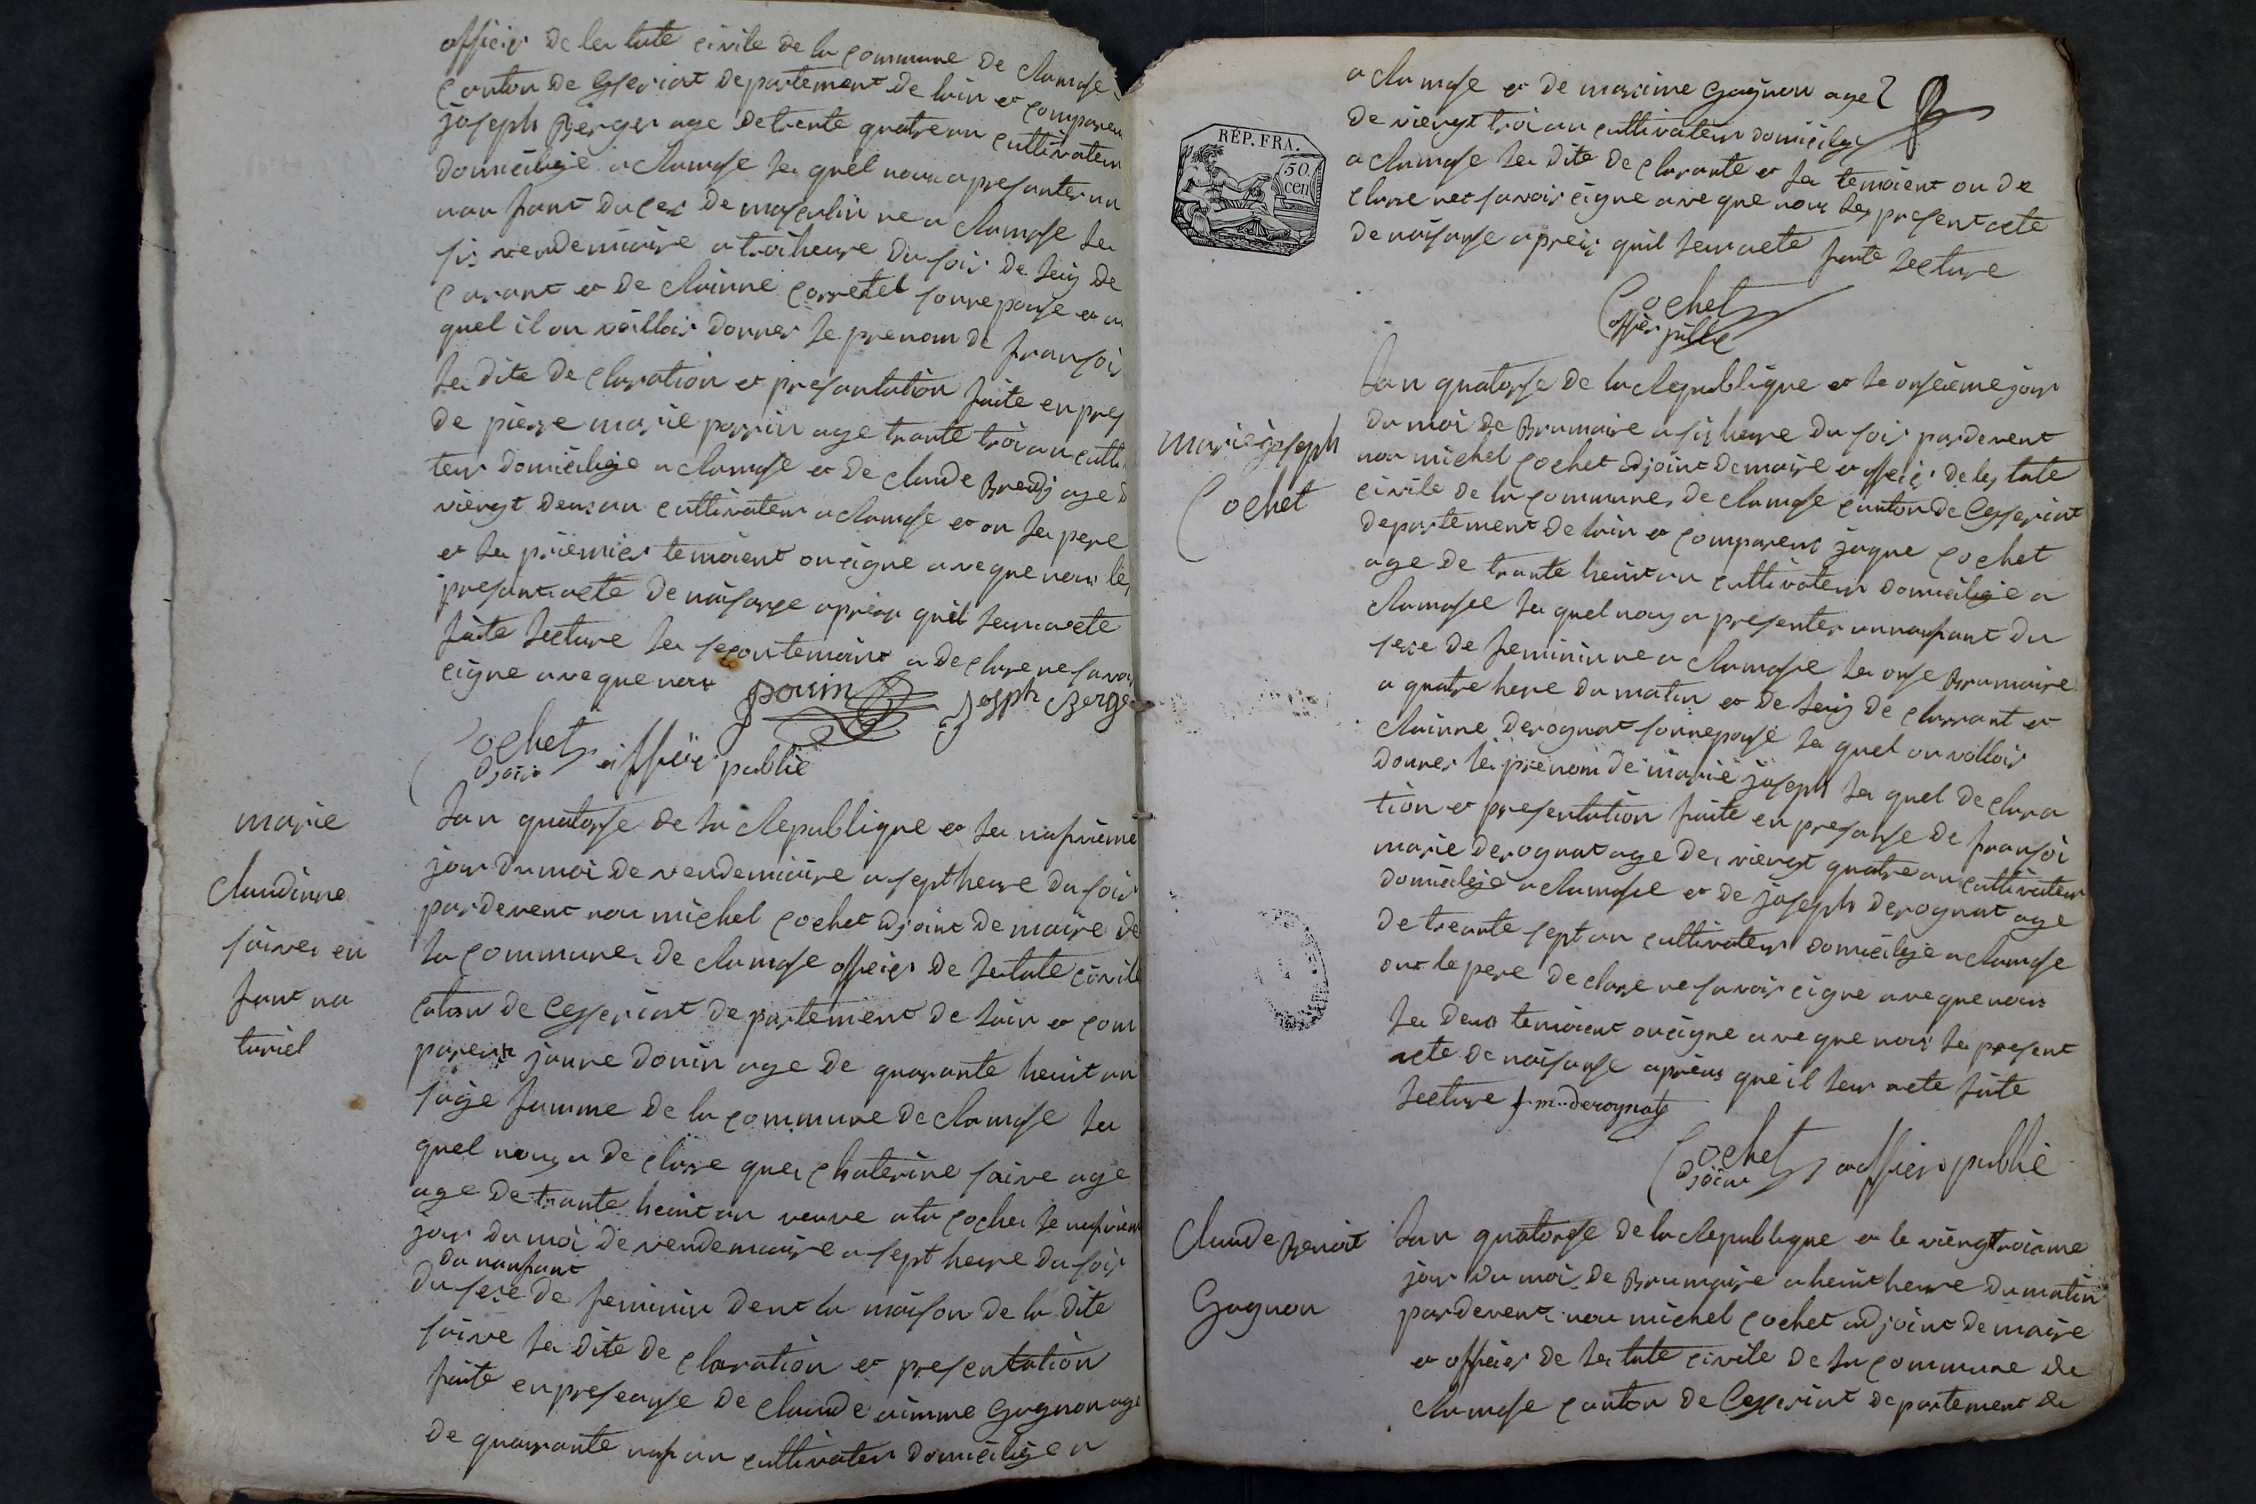 officier de les tate civile de la commune de Chamose
Canton de Ceyseriat departement de lain et comparen
joseph Berger age de trente quatre an cultivateur
domicilije a Chamose le quel nous a presanter un
nan fant du sex de masculin ne a Chamose le
sis vendemiaire a troi heure du soir de luiy de
Carant et de Clainne Corretel sonne pouse et au
quel il on voillois donner le prenom de fransois
les dite de claration et presantation faite en pres
de pierre marie perrin age trante troi an culti
teur domicilije a Chamose et de claude Brendj age d
viengt deus an cultivateur a Chamose et on le pere
et le priemier temoient on cigne aveque nous le
presant acte de naisanse apreia quil leur a ete
faite lecture le secon temoint a declare ne savoi
cigne aveque nous
perrin joseph Berge
Cochet adjoin officier publie
marie
Claudinne
faivre en
fant na
turiel
Lan quatorse de la Republique et le nafvieme
jour du moi de vendemiaire a sept heure du soir
pardevent nou michel Cochet adjoint de maire de
la commune de Chamose officier de le tate civile
Caton de Ceyseriat departement de lain et com
parent janne donin age de quarante heuit an
saije famme de la commune de Chamose la
quel nous a de clare que Chaterine faivre age
age de trante heuit an veuve a ta coche le nafviem
jour du moi de vendemiaire a sept heure du soir
du nanfant
du sexe de feminin dent la maison de la dite
faivre la dite de claration et presentation
faite en preseanse de Claude aimme Gagnon age
de quarante naf an cultivateur domicilije a
RÉP. FRA.
50 cen
a Chamose et de maxime Gagnon age
de viengt troi an cultivateur domicilije
a Chamose la dite de clarante et le temoient on de
clare nes savoir cigne aveque nous les present acte
de naisanse apreis quil leur a ete faite lecture
Cochet
offsier publie
marie joseph
Cochet
Lan quatorse de la Republique et le onsieme jour
du moi de Brumaire a sis heure du soir pardevent
nou michel Cochet adjoint de maire et officier de les tate
civile de la commune de Chamose canton de Ceyseriat
departement de lain et comparent jaque Cochet
age de trante heuit an cultivateur domicilije a
Chamosee le quel nous a presenter un nanfant du
sexe de feminin ne a Chamose le onse Brumaire
a quatre here du matin et de luiy de clarant et
Clainne derognat sonne pouse le quel on vollois
donner le prenom de marie joseph le quel declara
tion et presentation faite en presanse de fransoi
marie derognat age de viengt quatre an cultivateur
domicilije a Chamose et de joseph derognat age
de treante sept an cultivateur domicilije a Chamose
ont le pere declare ne savoir cigne aveque nous
les deux temoient on cigne aveque nous le present
acte de naisanse apreus que il leur a ete faite
lecture f. m. derognat
Cochet adjoint officier publie
Claude Benoit
Gagnon
Lan quatorse de la Republique et le viengt troisme
jour du moi de Brumaire a heuit heure du matin
pardevent nou michel Cochet adjoint de maire
et officier de le tate civile de la commune de
Chamose canton de Ceyseriat departement de